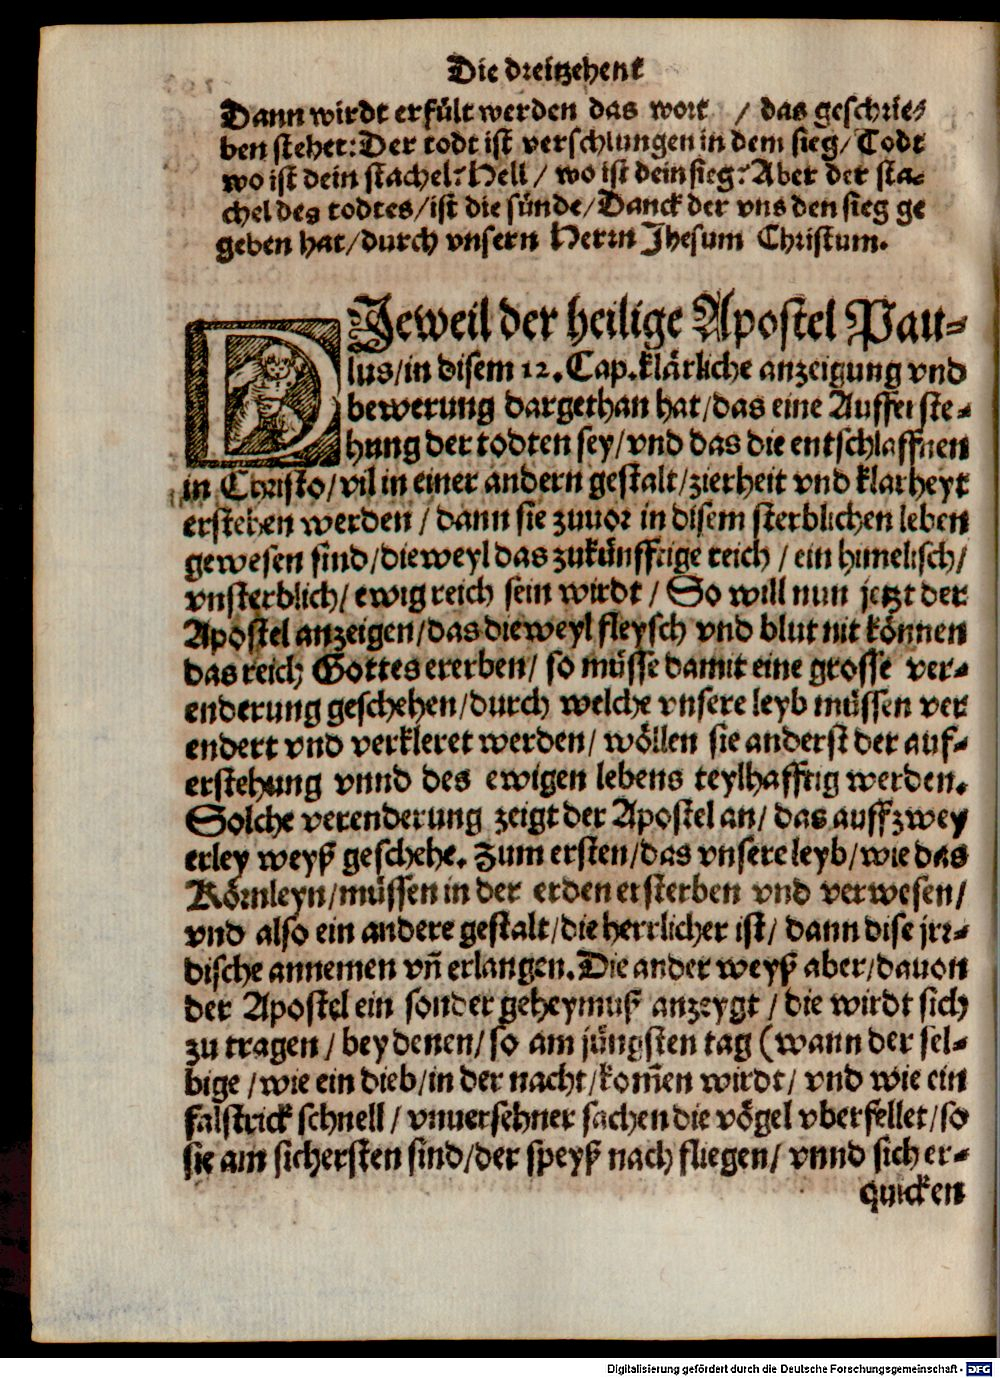 Die dreitzehent
Dann wirdt erfült werden das wort / das geschrie-
ben stehet: Der todt ist verschlungen in dem sieg / Todt
wo ist dein stachel? Hell / wo ist dein sieg? Aber der sta-
chel des todtes / ist die sünde / Danck der vns den sieg ge
geben hat / durch vnsern Herrn Jhesum Christum.
DJeweil der heilige Apostel Pau-
lus / in disem 12. Cap. klärliche anzeigung vnd
bewerung dargethan hat / das eine Aufferste-
hung der todten sey / vnd das die entschlaffnen
in Christo / vil in einer andern gestalt / zierheit vnd klarheyt
erstehen werden / dann sie zuuor in disem sterblichen leben
gewesen sind / dieweyl das zukünfftige reich / ein himelisch /
vnsterblich / ewig reich sein wirdt / So will nun jetzt der
Apostel anzeigen / das dieweyl fleysch vnd blut nit können
das reich Gottes ererben / so müsse damit eine grosse ver-
enderung geschehen / durch welche vnsere leyb müssen ver
endert vnd verkleret werden / wöllen sie anderst der auf-
erstehung vnnd des ewigen lebens teylhafftig werden.
Solche verenderung zeigt der Apostel an / das auff zwey
erley weyß geschehe. Zum ersten / das vnsere leyb / wie das
Körnleyn / müssen in der erden ersterben vnd verwesen /
vnd also ein andere gestalt / die herrlicher ist / dann dise jrr-
dische annemen vñ erlangen. Die ander weyß aber / dauon
der Apostel ein sonder geheymnuß anzeygt / die wirdt sich
zu tragen / bey denen / so am jüngsten tag (wann der sel-
bige / wie ein dieb / in der nacht / kom̃en wirdt / vnd wie ein
falstrick schnell / vnuersehner sachen die vögel vberfellet / so
sie am sichersten sind / der speyß nach fliegen / vnnd sich er-
quicken
Digitalisierung gefördert durch die Deutsche Forschungsgemeinschaft - DFG